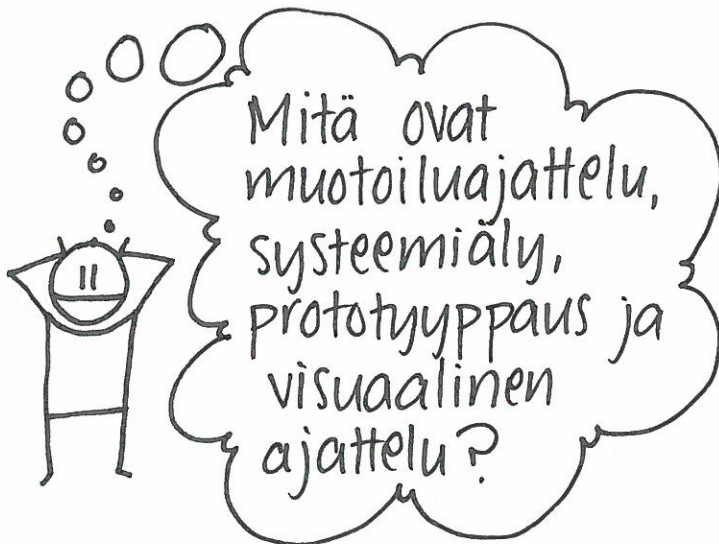 Mitä ovat
muotoiluajattelu,
systeemiäly,
prototyyppaus ja
visuaalinen
ajattelu?